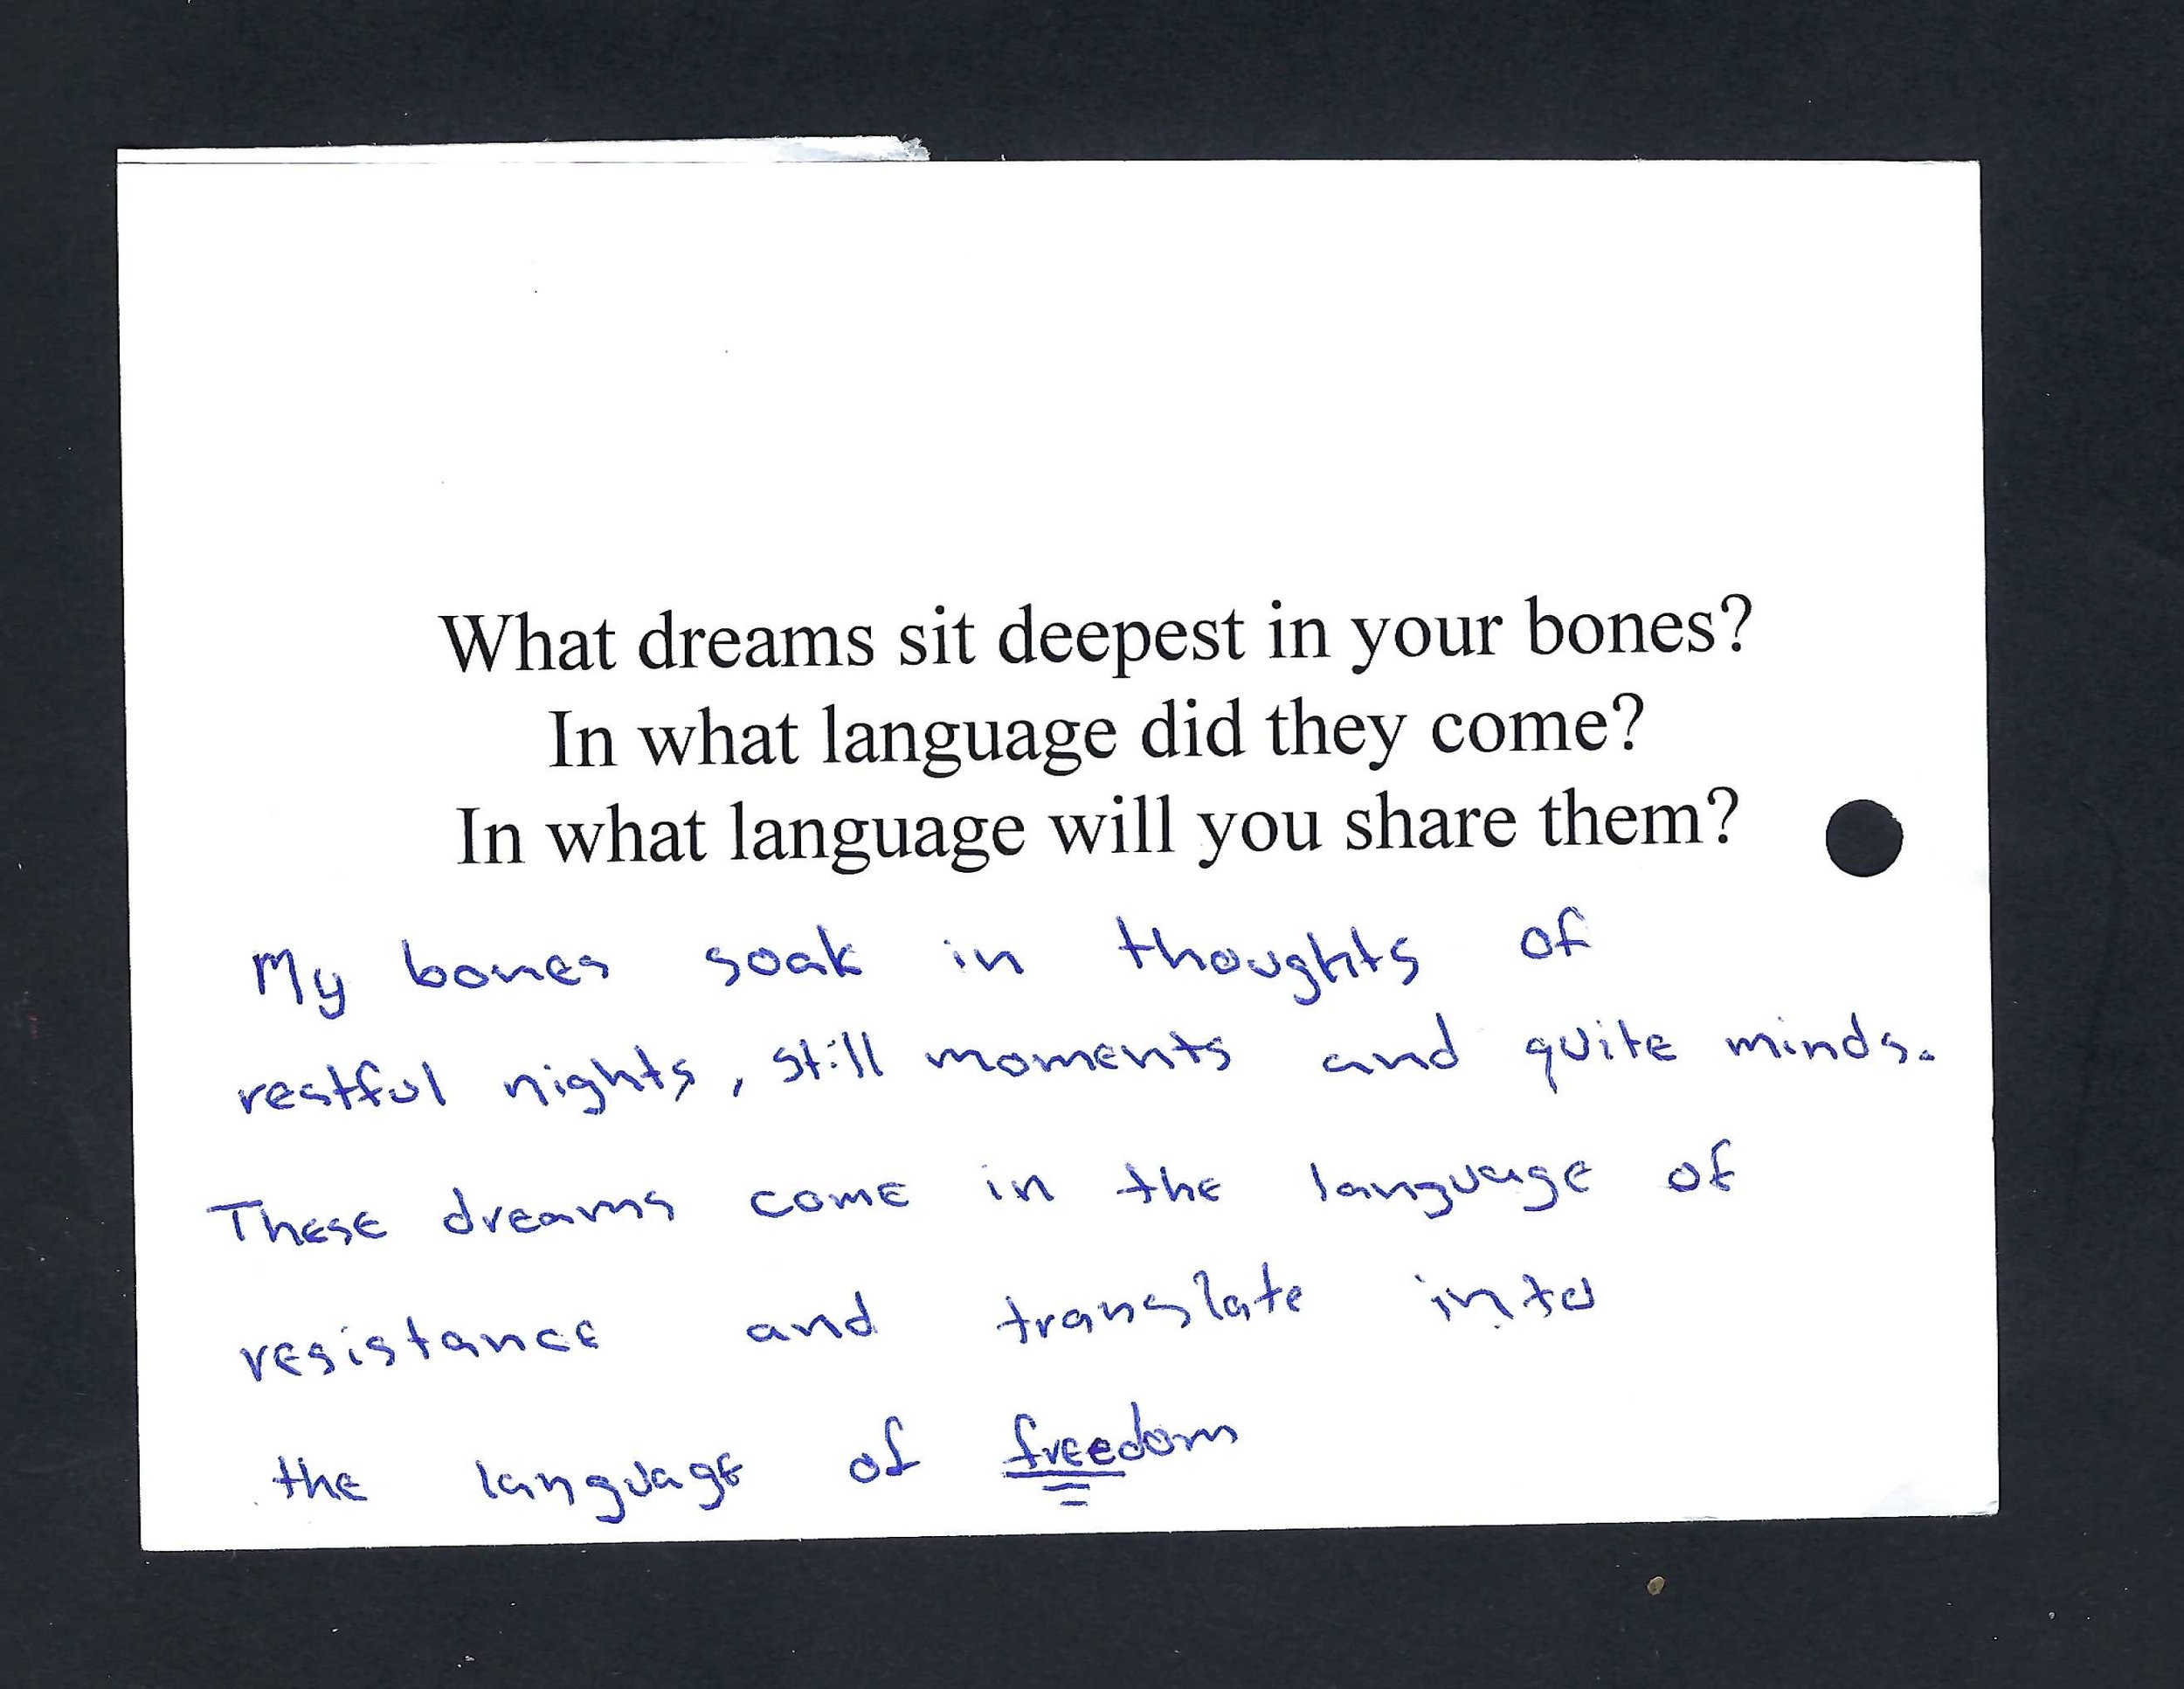 What dreams sit deepest in your bones?
In what language did they come?
In what language will you share them?
My bones soak in thoughts of
restful nights, still moments and quite minds.
These dreams come in the language of
resistance and translate into
the language of freedom